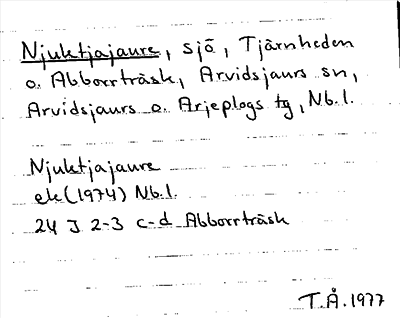 Njuktjajaure, sjö, Tjärnheden
o. Abborrträsk, Arvidsjaurs sn,
Arvidsjaurs o. Arjeplogs tg, Nb. l.
Njuktjajaure
ek (1974) Nb. l.
24 J 2-3 c-d Abborrträsk
T.Å. 1977